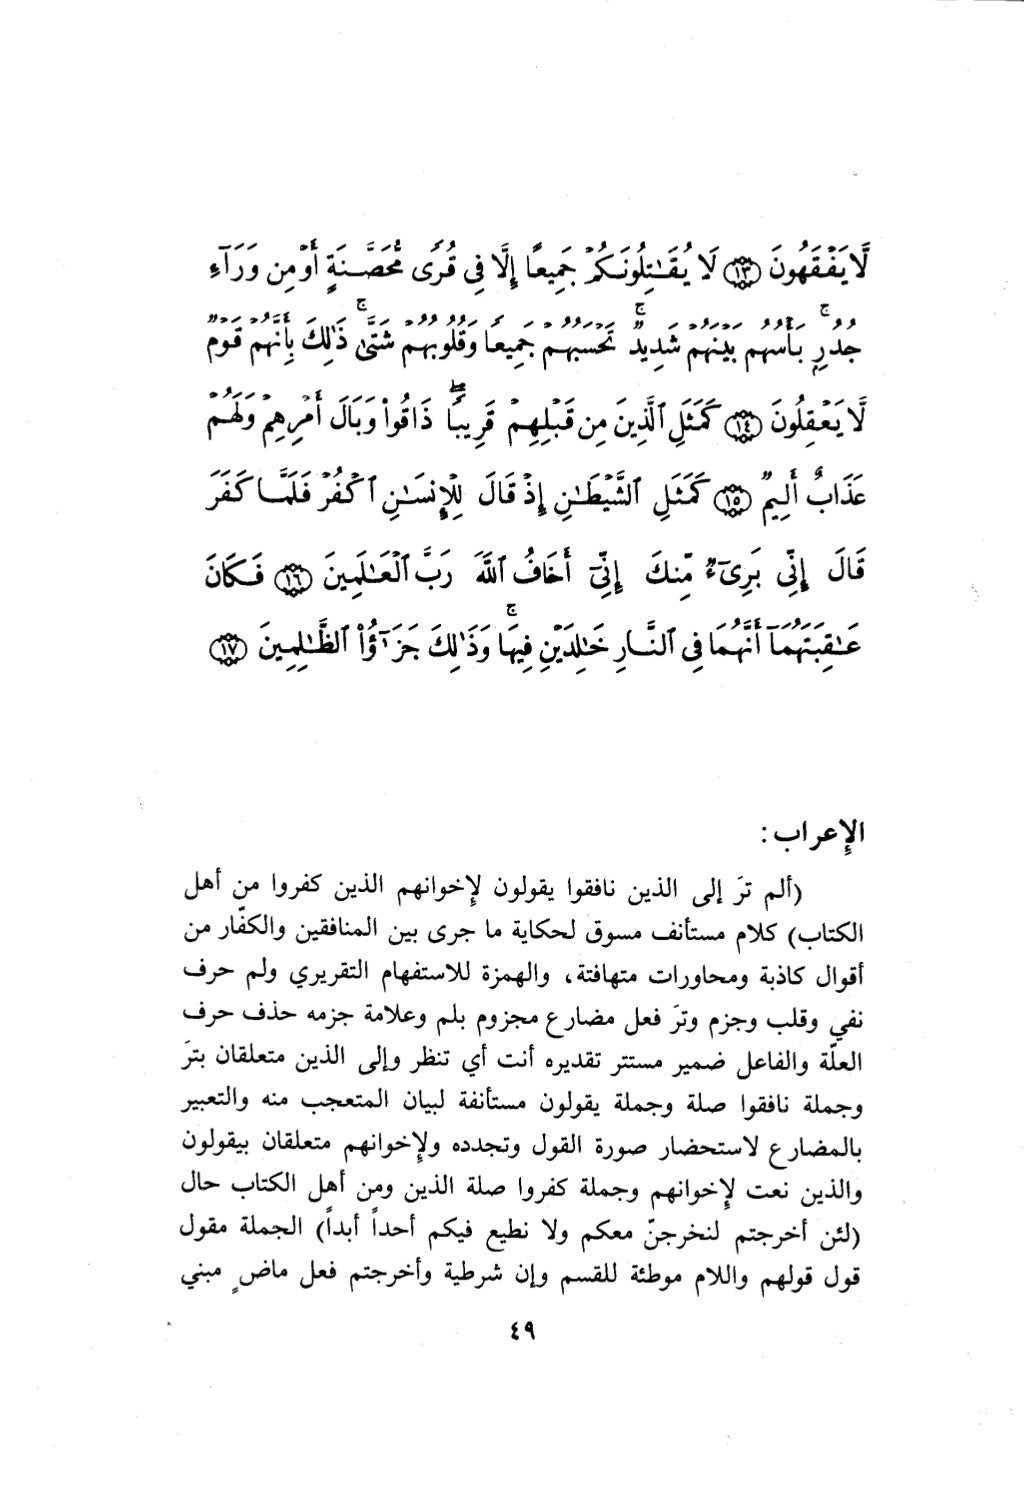 لَّا يَفْقَهُونَ ﴿١٣﴾ لَا يُقَٰتِلُونَكُمْ جَمِيعًا إِلَّا فِى قُرًى مُّحَصَّنَةٍ أَوْ مِن وَرَآءِ
جُدُرٍۚ بَأْسُهُم بَيْنَهُمْ شَدِيدٌۚ تَحْسَبُهُمْ جَمِيعًا وَقُلُوبُهُمْ شَتَّىٰۚ ذَٰلِكَ بِأَنَّهُمْ قَوْمٌ
لَّا يَعْقِلُونَ ﴿١٤﴾ كَمَثَلِ ٱلَّذِينَ مِن قَبْلِهِمْ قَرِيبًاۖ ذَاقُوا۟ وَبَالَ أَمْرِهِمْ وَلَهُمْ
عَذَابٌ أَلِيمٌ ﴿١٥﴾ كَمَثَلِ ٱلشَّيْطَٰنِ إِذْ قَالَ لِلْإِنسَٰنِ ٱكْفُرْ فَلَمَّا كَفَرَ
قَالَ إِنِّى بَرِىٓءٌ مِّنكَ إِنِّىٓ أَخَافُ ٱللَّهَ رَبَّ ٱلْعَٰلَمِينَ ﴿١٦﴾ فَكَانَ
عَٰقِبَتَهُمَآ أَنَّهُمَا فِى ٱلنَّارِ خَٰلِدَيْنِ فِيهَاۚ وَذَٰلِكَ جَزَٰٓؤُا۟ ٱلظَّٰلِمِينَ ﴿١٧﴾
الإِعراب:
(ألم ترَ إلى الذين نافقوا يقولون لإِخوانهم الذين كفروا من أهل
الكتاب) كلام مستأنف مسوق لحكاية ما جرى بين المنافقين والكفّار من
أقوال كاذبة ومحاورات متهافتة، والهمزة للاستفهام التقريري ولم حرف
نفي وقلب وجزم وترَ فعل مضارع مجزوم بلم وعلامة جزمه حذف حرف
العلّة والفاعل ضمير مستتر تقديره أنت أي تنظر وإلى الذين متعلقان بترَ
وجملة نافقوا صلة وجملة يقولون مستأنفة لبيان المتعجب منه والتعبير
بالمضارع لاستحضار صورة القول وتجدده ولإخوانهم متعلقان بيقولون
والذين نعت لإِخوانهم وجملة كفروا صلة الذين ومن أهل الكتاب حال
(لئن أخرجتم لنخرجنّ معكم ولا نطيع فيكم أحداً أبداً) الجملة مقول
قول قولهم واللام موطئة للقسم وإن شرطية وأخرجتم فعل ماضٍ مبني
٤٩